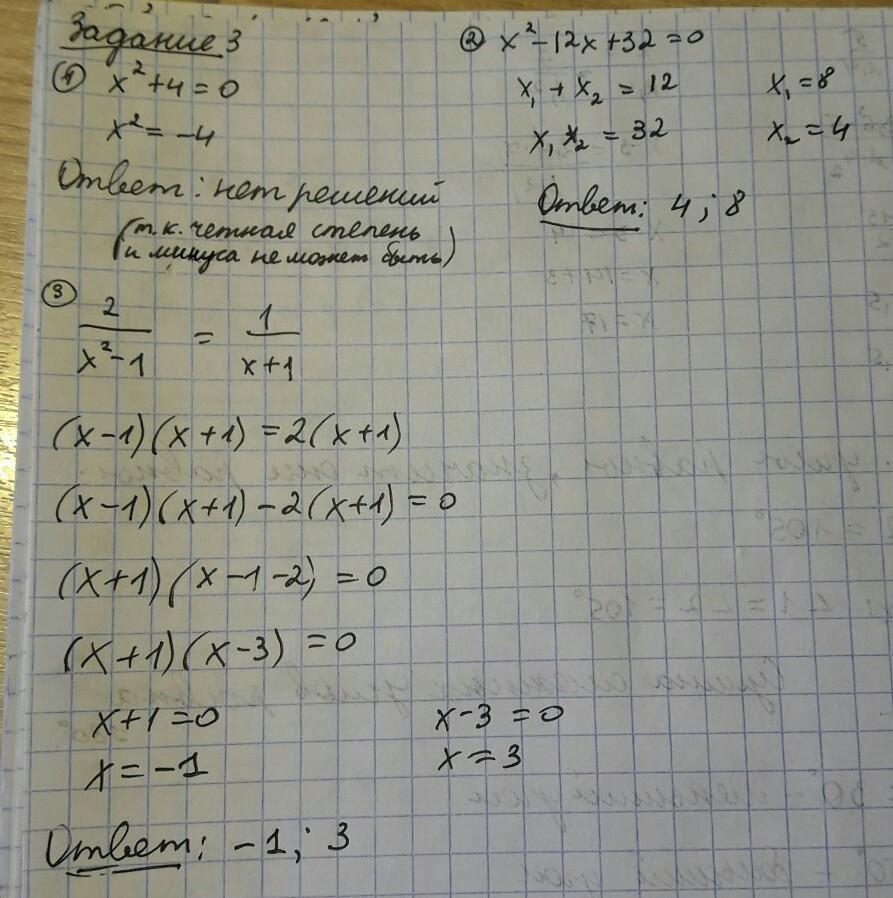 Задание 3
① x² + 4 = 0
x² = -4
Ответ: нет решений
(т.к. четная степень
и минуса не может быть)
② x² - 12x + 32 = 0
x₁ + x₂ = 12 x₁ = 8
x₁ x₂ = 32 x₂ = 4
Ответ: 4; 8
③
2/(x² - 1) = 1/(x + 1)
(x - 1)(x + 1) = 2(x + 1)
(x - 1)(x + 1) - 2(x + 1) = 0
(x + 1)(x - 1 - 2) = 0
(x + 1)(x - 3) = 0
x + 1 = 0 x - 3 = 0
x = -1 x = 3
Ответ: -1; 3